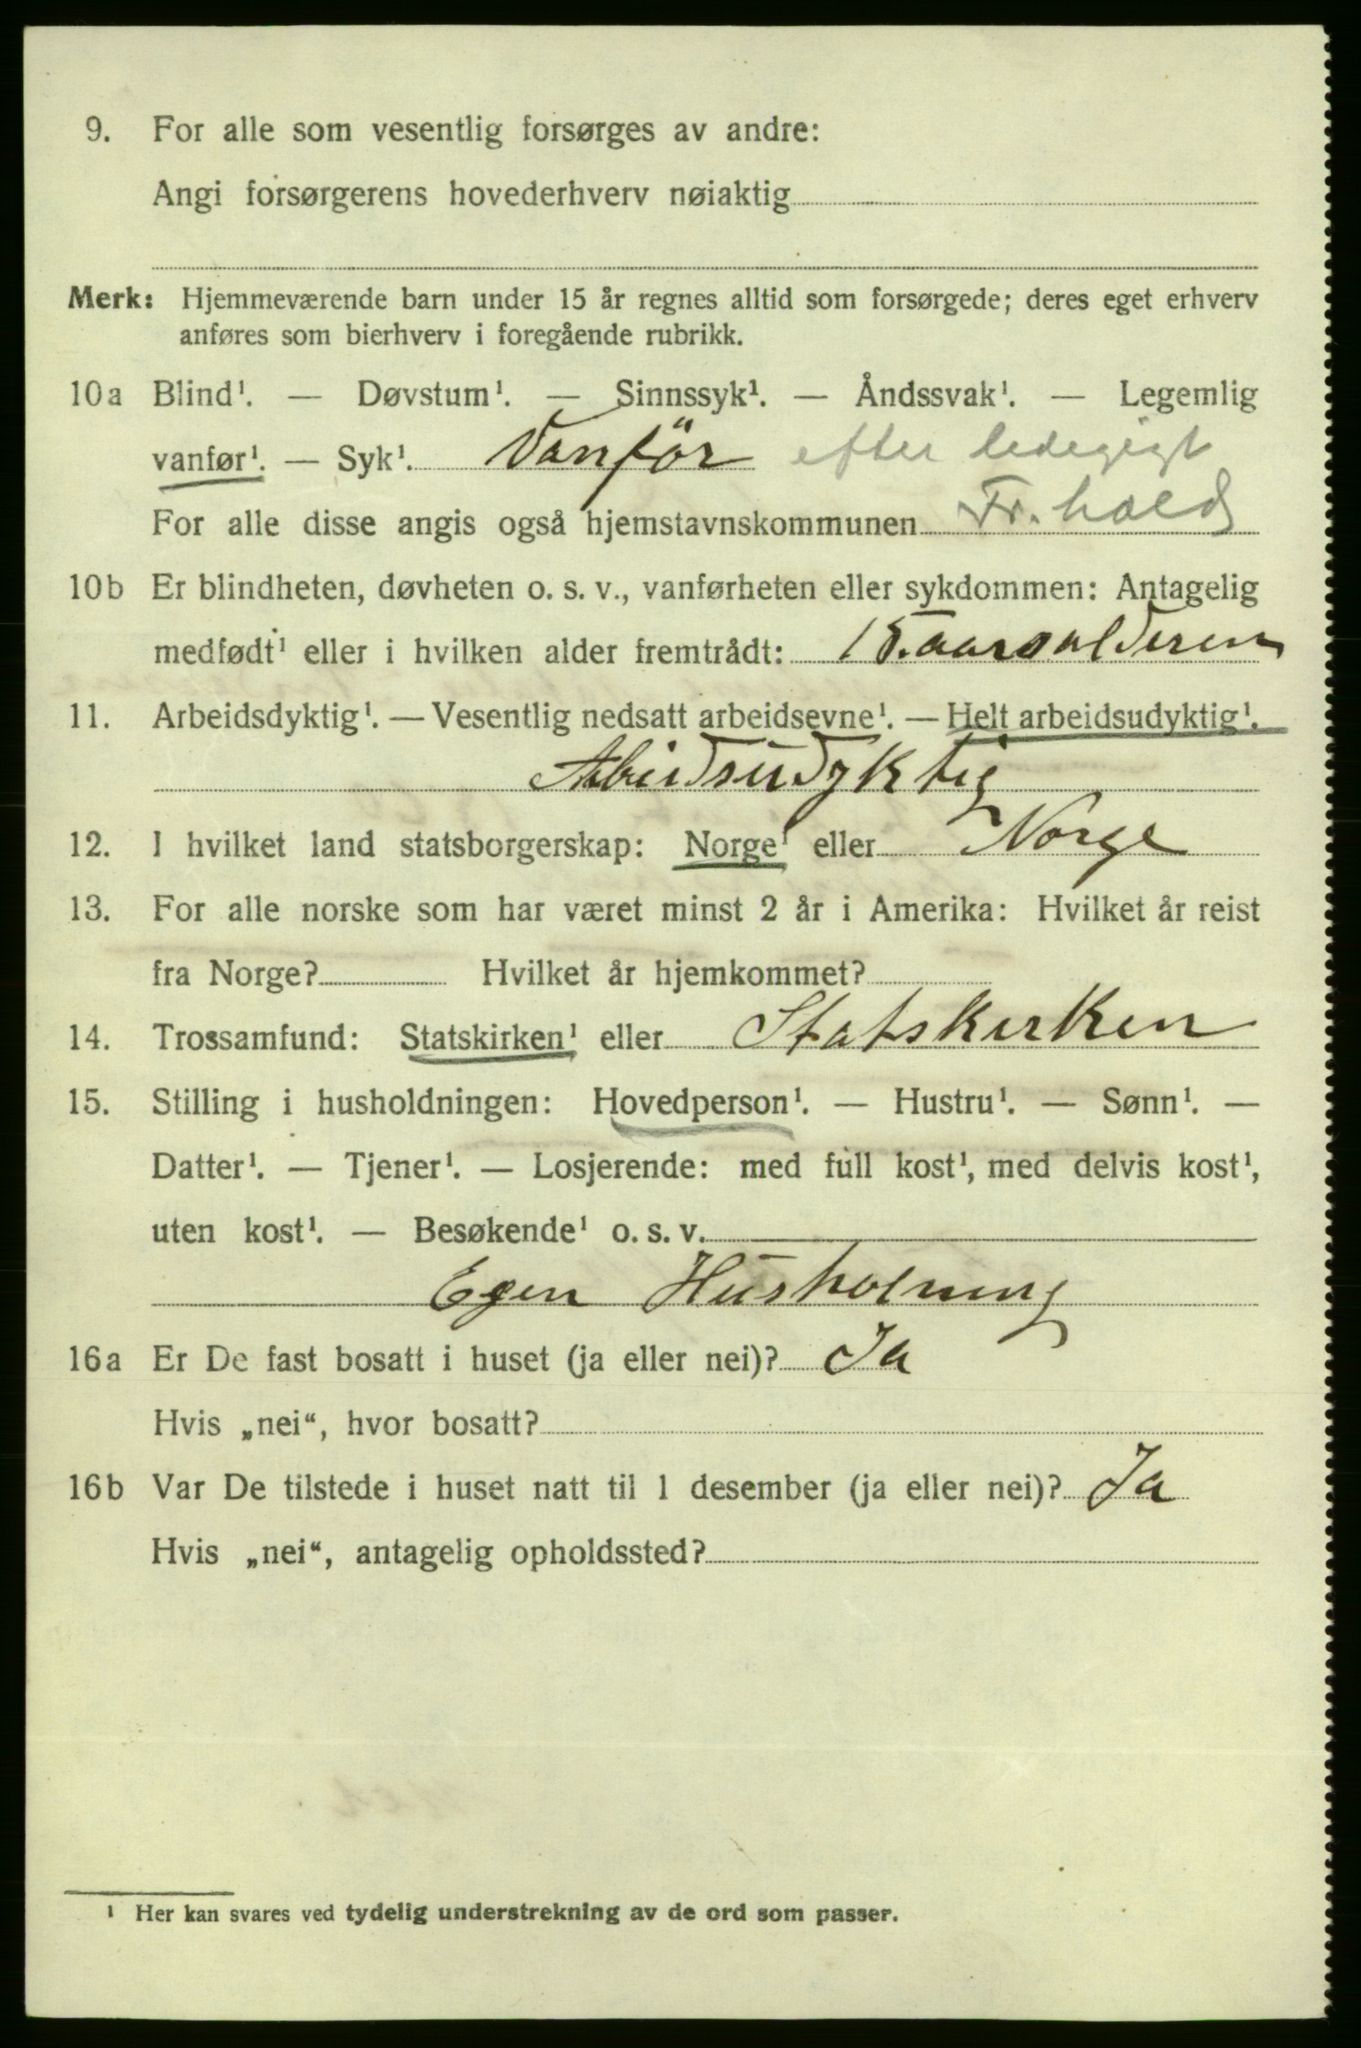 9. For alle som vesentlig forsørges av andre:
Angi forsørgerens hovederhverv nøiaktig
Merk: Hjemmeværende barn under 15 år regnes alltid som forsørgede; deres eget erhverv
anføres som bierhverv i foregående rubrikk.
10a Blind¹. — Døvstum¹. — Sinnssyk¹. — Åndssvak¹. — Legemlig
vanfør¹. — Syk¹. Vanför efter ledegigt
For alle disse angis også hjemstavnskommunen Fr. hald
10b Er blindheten, døvheten o. s. v., vanførheten eller sykdommen: Antagelig
medfødt¹ eller i hvilken alder fremtrådt: 15. aarsalderen
11. Arbeidsdyktig¹. — Vesentlig nedsatt arbeidsevne¹. — Helt arbeidsudyktig¹.
Abeidsudyktig
12. I hvilket land statsborgerskap: Norge¹ eller Norge
13. For alle norske som har været minst 2 år i Amerika: Hvilket år reist
fra Norge? Hvilket år hjemkommet?
14. Trossamfund: Statskirken¹ eller Statskirken
15. Stilling i husholdningen: Hovedperson¹. — Hustru¹. — Sønn¹. —
Datter¹. — Tjener¹. — Losjerende: med full kost¹, med delvis kost¹,
uten kost¹. — Besøkende¹ o. s. v.
Egen Husholning
16a Er De fast bosatt i huset (ja eller nei)? Ja
Hvis „nei“, hvor bosatt?
16b Var De tilstede i huset natt til 1 desember (ja eller nei)? Ja
Hvis „nei“, antagelig opholdssted?
¹ Her kan svares ved tydelig understrekning av de ord som passer.